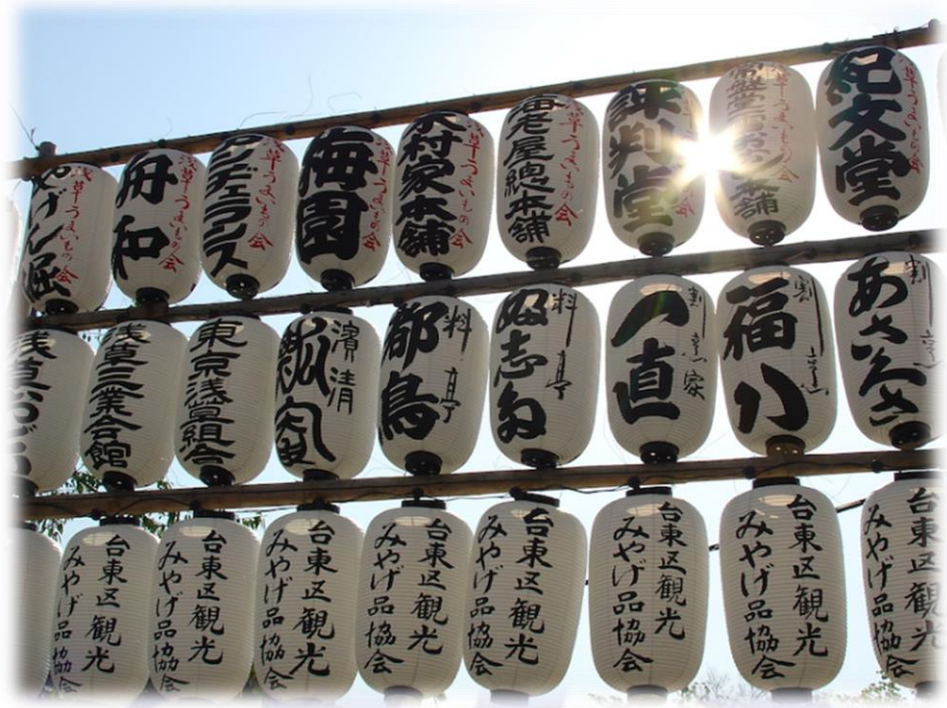 浅草うまいもの会
やげん堀
浅草うまいもの会
舟和
浅草うまいもの会
アンヂェラス
浅草うまいもの会
梅園
浅草うまいもの会
木村家本舗
浅草うまいもの会
海老屋總本舗
浅草うまいもの会
評判堂
浅草うまいもの会
常盤堂雷おこし本舗
浅草うまいもの会
紀文堂
浅草
浅草三業会館
東京浅草組合
濱清
料亭
都鳥
料亭
志
割烹家
一直
割烹
福八
割烹
台東区観光
みやげ品協会
台東区観光
みやげ品協会
台東区観光
みやげ品協会
台東区観光
みやげ品協会
台東区観光
みやげ品協会
台東区観光
みやげ品協会
台東区観光
みやげ品協会
台東区観光
みやげ品協会